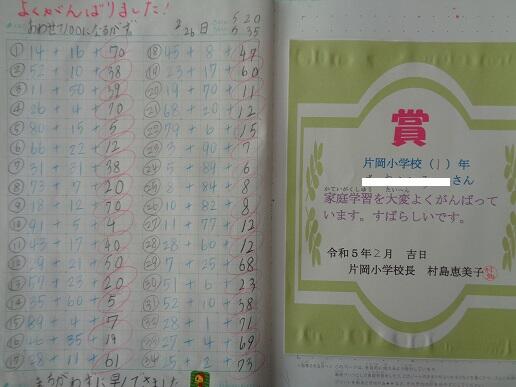 よくがんばりました!
あわせて100になるかず
2/26日
5 20
5 35
① 14 + 16 + 70
② 52 + 10 + 38
③ 11 + 50 + 39
④ 26 + 4 + 70
⑤ 80 + 15 + 5
⑥ 66 + 22 + 12
⑦ 31 + 31 + 38
⑧ 73 + 7 + 20
⑨ 18 + 12 + 70
⑩ 91 + 5 + 4
⑪ 43 + 17 + 40
⑫ 29 + 21 + 50
⑬ 57 + 23 + 20
⑭ 35 + 60 + 5
⑮ 89 + 4 + 7
⑯ 46 + 35 + 19
⑰ 28 + 11 + 61
⑱ 45 + 8 + 47
⑲ 23 + 17 + 60
⑳ 19 + 70 + 11
㉑ 68 + 20 + 12
㉒ 79 + 6 + 15
㉓ 3 + 90 + 7
㉔ 5 + 89 + 6
㉕ 8 + 84 + 8
㉖ 10 + 82 + 8
㉗ 11 + 77 + 12
㉘ 28 + 60 + 12
㉙ 7 + 25 + 68
㉚ 51 + 6 + 23
㉛ 52 + 10 + 38
㉜ 28 + 1 + 71
㉝ 27 + 4 + 69
㉞ 25 + 2 + 73
まちがわずに早くできました
賞
片岡小学校(1)年
さん
かていがくしゅう たいへん
家庭学習を大変よくがんばって
います。すばらしいです。
令和5年2月 吉日
片岡小学校長 村島恵美子